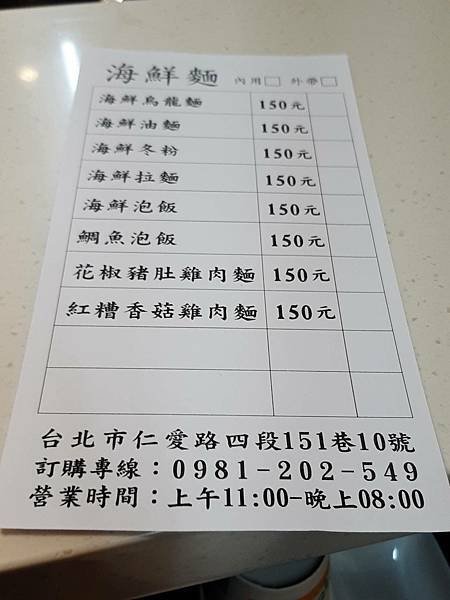 海鮮麵 內用□ 外帶□
海鮮烏龍麵 150元
海鮮油麵 150元
海鮮冬粉 150元
海鮮拉麵 150元
海鮮泡飯 150元
鯛魚泡飯 150元
花椒豬肚雞肉麵 150元
紅糟香菇雞肉麵 150元
台北市仁愛路四段151巷10號
訂購專線：0981-202-549
營業時間：上午11:00-晚上08:00